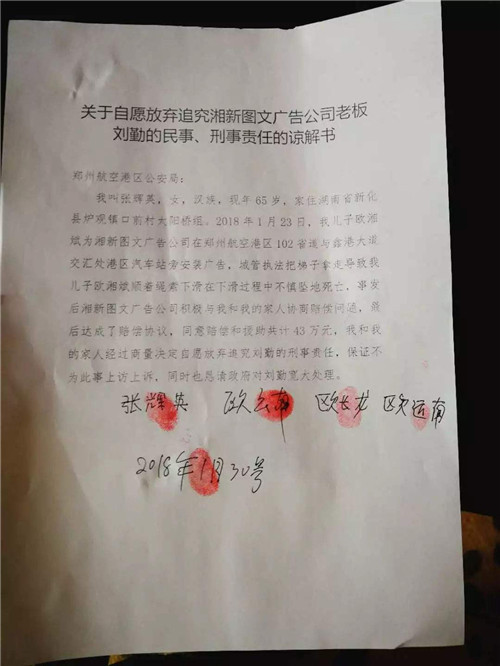 关于自愿放弃追究湘新图文广告公司老板
刘勤的民事、刑事责任的谅解书
郑州航空港区公安局：
我叫张辉英，女，汉族，现年 65 岁，家住湖南省新化
县炉观镇口前村大阳桥组。2018 年 1 月 23 日，我儿子欧湘
斌为湘新图文广告公司在郑州航空港区 102 省道与鑫港大道
交汇处港区汽车站旁安装广告，城管执法把梯子拿走导致我
儿子欧湘斌顺着绳索下滑在下滑过程中不慎坠地死亡，事发
后湘新图文广告公司积极与我和我的家人协商赔偿问题，最
后达成了赔偿协议，同意赔偿和援助共计 43 万元，我和我
的家人经过商量决定自愿放弃追究刘勤的刑事责任，保证不
为此事上访上诉，同时也恳请政府对刘勤宽大处理。
张辉英 欧 欧长龙 欧运南
2018年1月30号